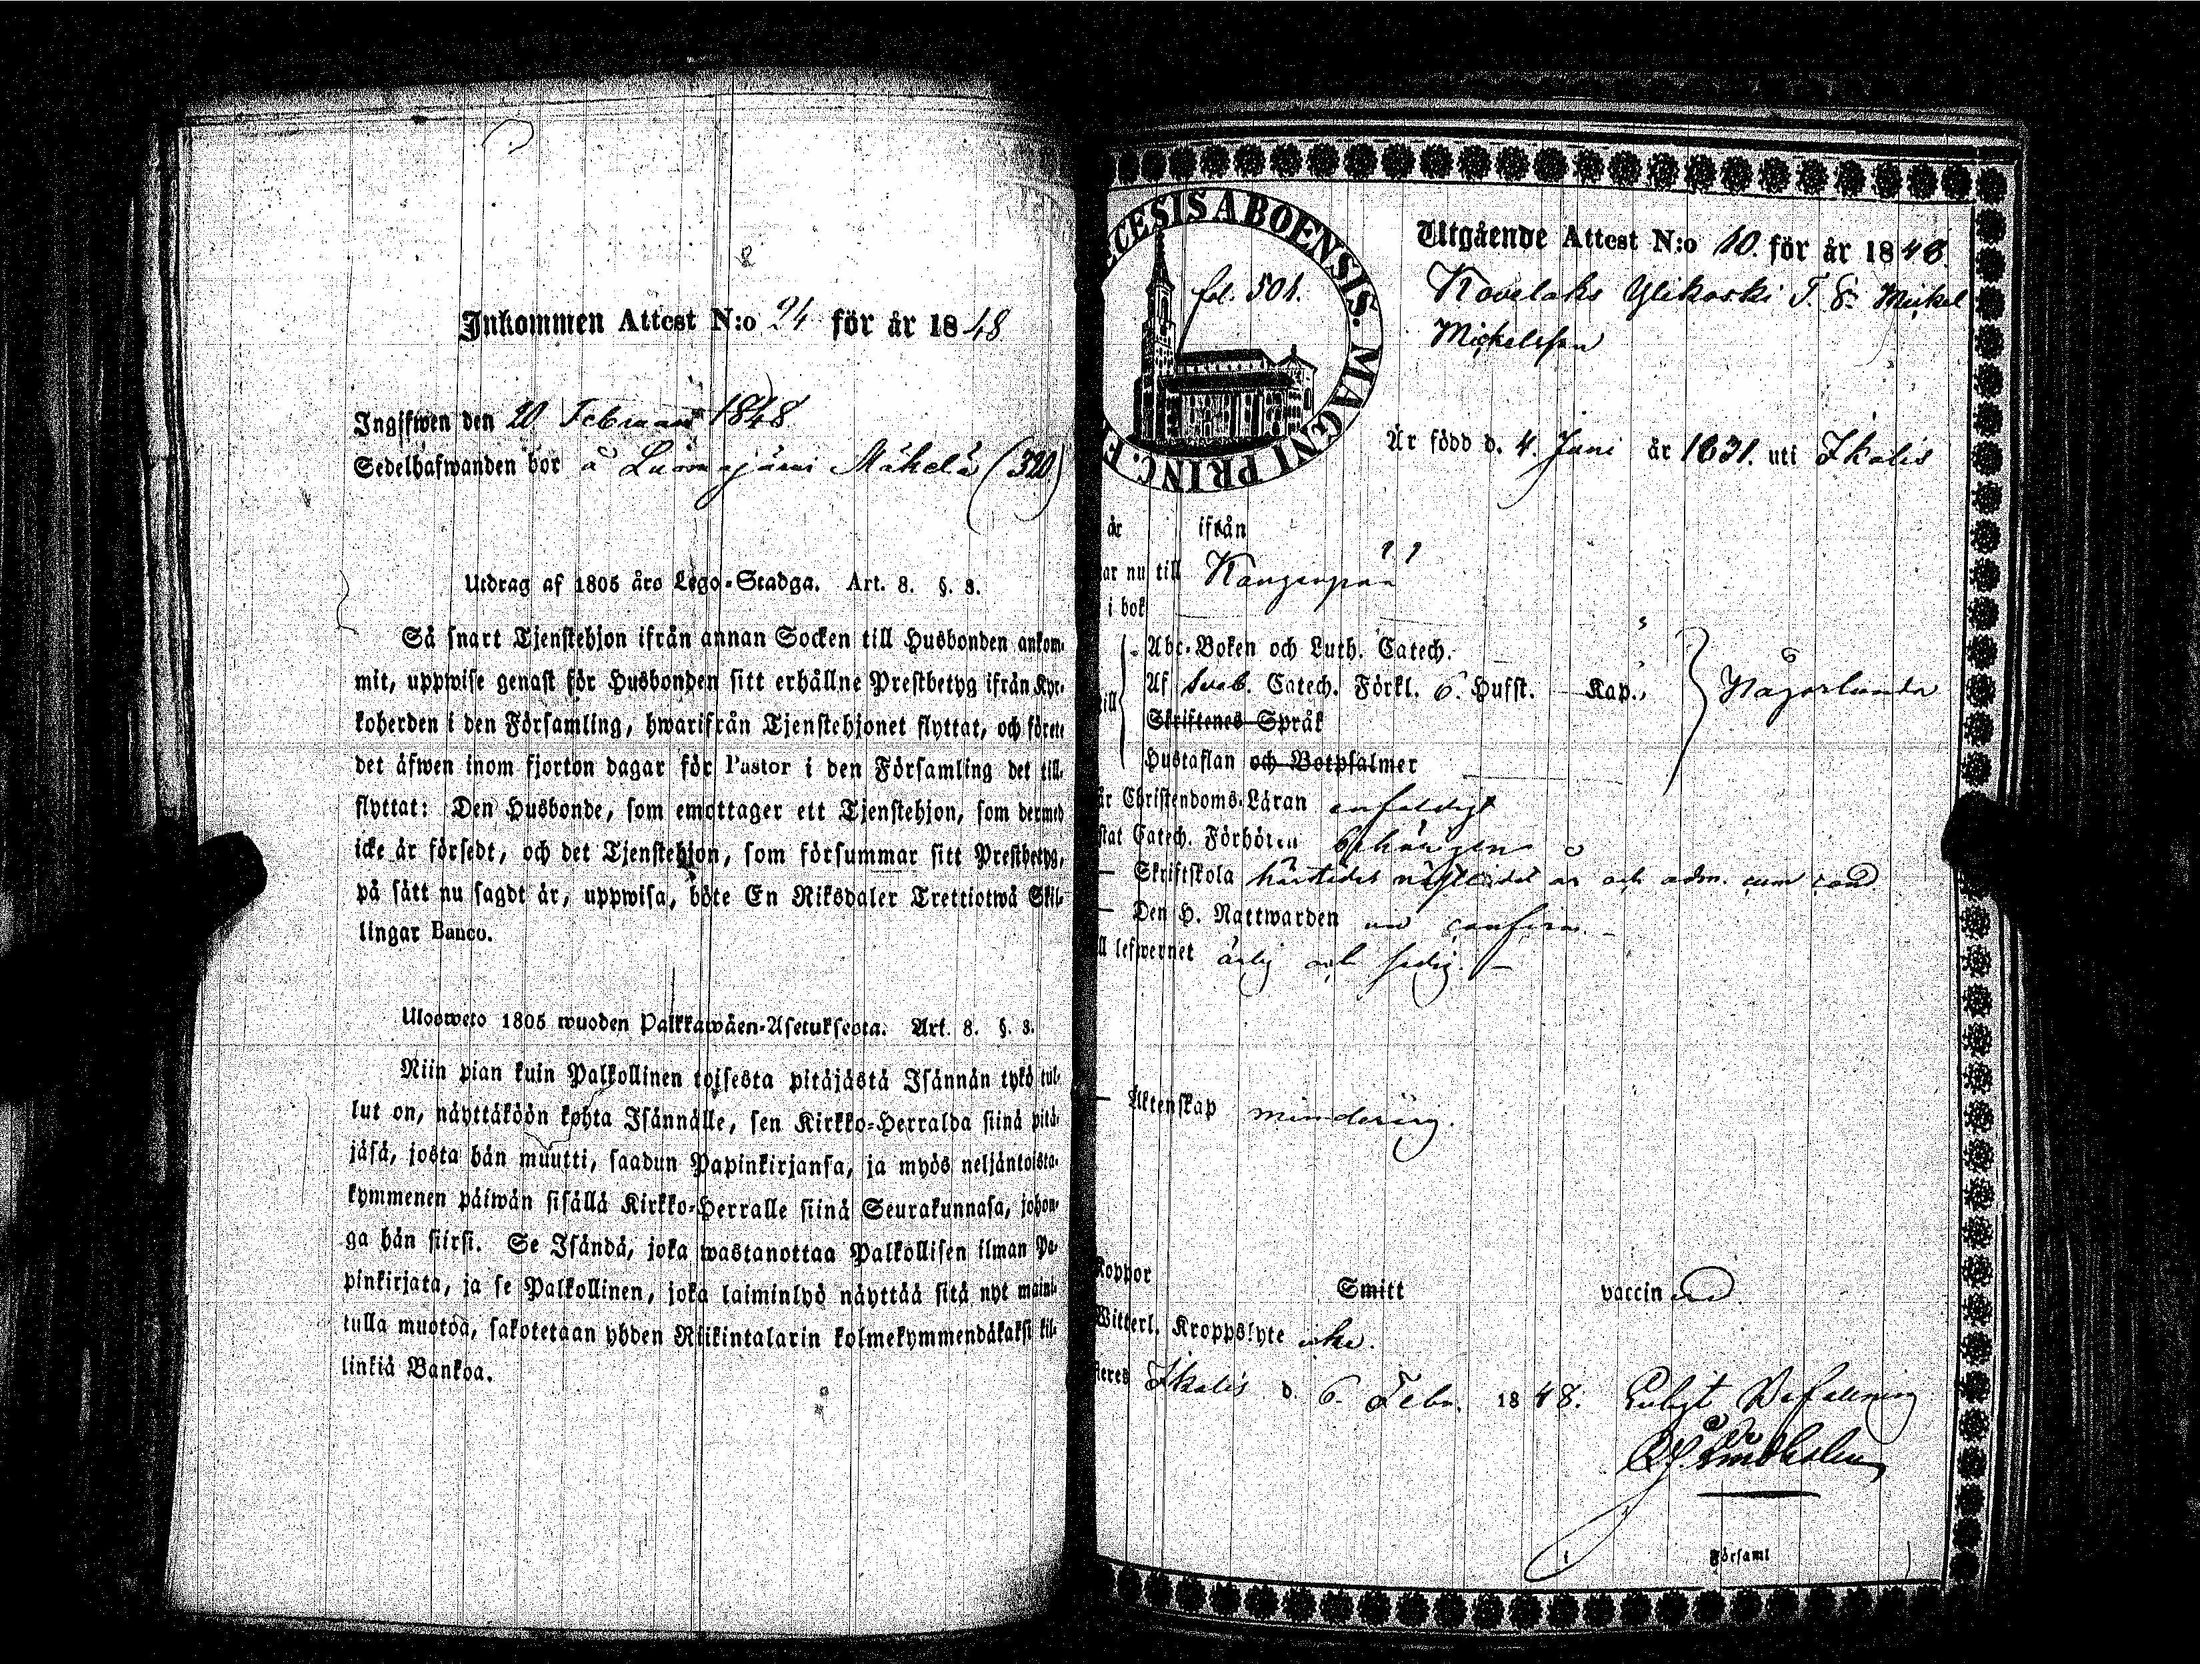 Inkommen Attest N:o 24 för år 1848
Ingifwen den 20 Februari 1848
Sedelhafwanden bor å Luomajärvi Mäkelä (320)
Utdrag af 1805 års Lego-Stadga. Art. 8. §. 3.
Så snart Tjenstehjon ifrån annan Socken till Husbonden ankom-
mit, uppwise genast för Husbonden sitt erhållne Prestbetyg ifrån Kyr-
koherden i den Församling, hwarifrån Tjenstehjonet flyttat, och förete
det äfwen inom fjorton dagar för Pastor i den Församling det till-
flyttat: Den Husbonde, som emottager ett Tjenstehjon, som dermed
icke är försedt, och det Tjenstehjon, som försummar sitt Prestbetyg,
på sätt nu sagdt är, uppwisa, böte En Riksdaler Trettiotwå Skil-
lingar Banco.
Ulosweto 1805 wuoden Palkkawäen-Asetuksesta. Art. 8. §. 3.
Niin pian kuin Palkollinen toisesta pitäjästä Isännän tykö tul-
lut on, näyttäköön kohta Isännälle, sen Kirkko-Herralda siinä pitä-
jäsä, josta hän muutti, saadun Papinkirjansa, ja myös neljäntoista-
kymmenen päiwän sisällä Kirkko-Herralle siinä Seurakunnasa, johon-
ga hän siirsi. Se Isändä, joka wastanottaa Palkollisen ilman Pa-
pinkirjata, ja se Palkollinen, joka laiminlyö näyttää sitä nyt maini-
tulla muotoa, sakotetaan yhden Riikintalarin kolmekymmendäkaksi kil-
linkiä Bankoa.
CESIS ABOENSIS. MAGNI PRINC. F
fol. 501.
Utgående Attest N:o 10. för år 1848.
Kovelaks Ylikoski T. S. Mickel
Mickelsson
Är född d. 4. Juni år 1831. uti Ikalis
år ifrån
ar nu till Kangaspää
i bok
Abc-Boken och Luth. Catech.
Af Sveb. Catech. Förkl. 6. Hufst. Kap. Någorlunda
Skriftenes Språk
Hustaflan och Botpsalmer
år Christendoms-Läran enfaldigt
stat Catech. Förhören behörigen
Skriftskola härstädes nästledet år och adm. cum cand
Den H. Nattwarden
ll lefwernet ärlig och sedig.
Äktenskap minderårig.
Koppor Smitt vaccinerad
Witterl. Kroppslyte icke.
eres Ikalis d. 6. Febr. 1848. Enligt Befallning
Församl